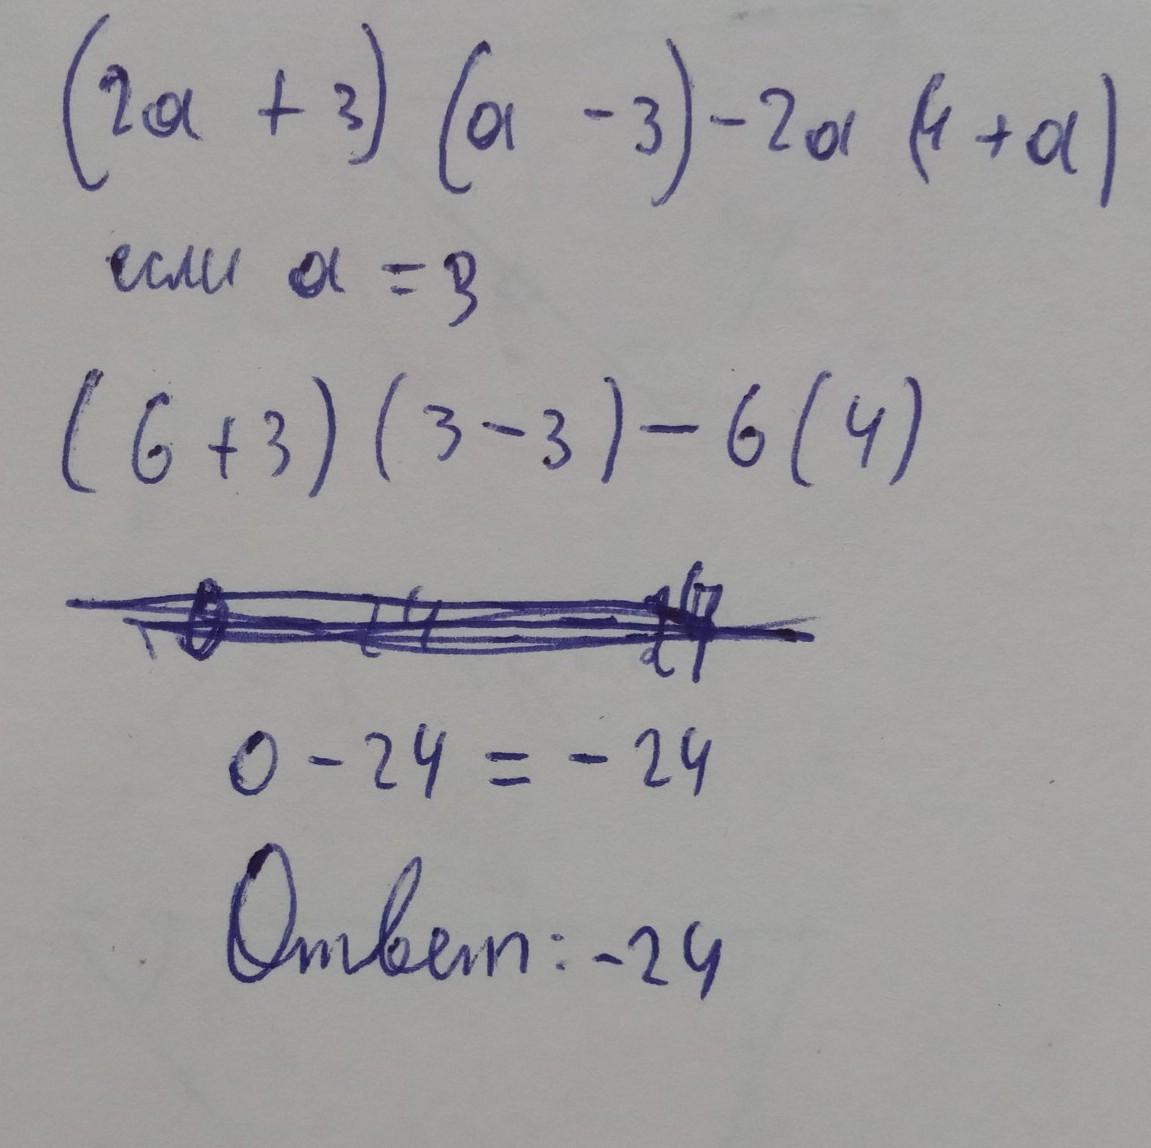 (2a + 3) (a - 3) - 2a (4 + a)
если a = 3
(6 + 3) (3 - 3) - 6 (4)
0 - 24 = - 24
Ответ: - 24